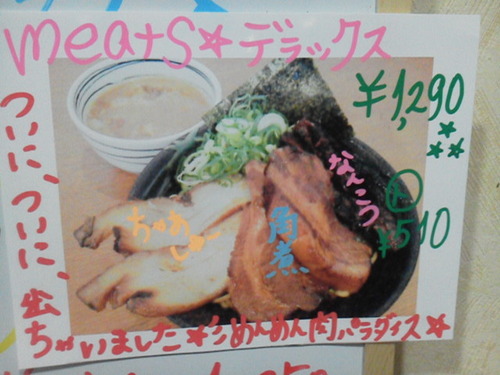 meats☆デラックス
¥1,290
なんこつ
¥510
ちゃあしゅー
角煮
ついに、ついに、出ちゃいました☆めんめん肉パラダイス☆